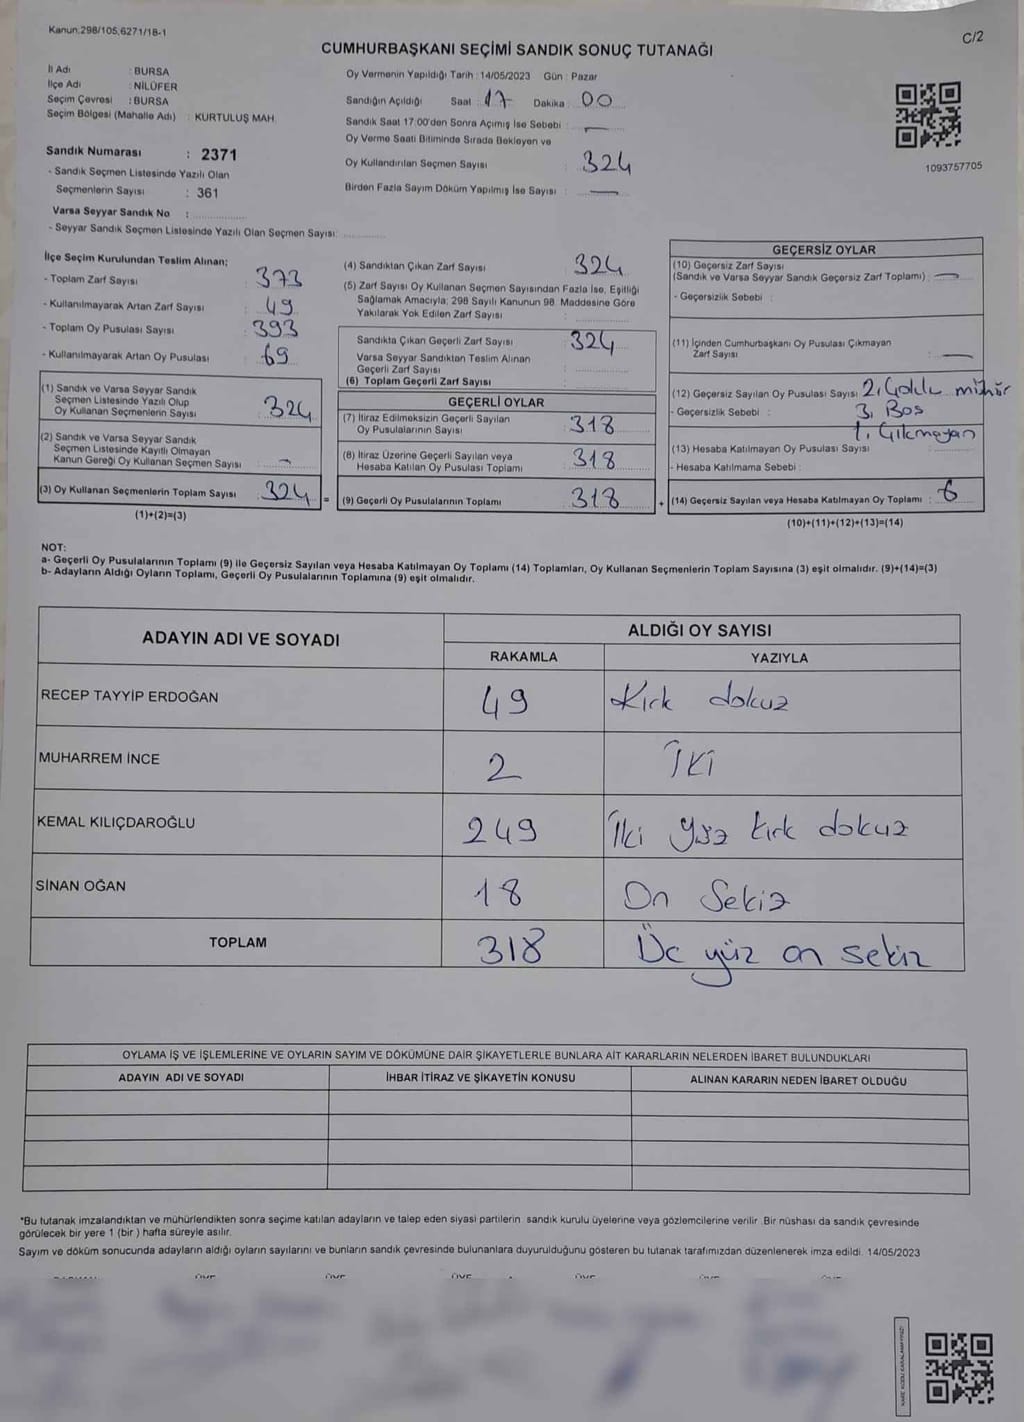 Kanun:298/105,6271/18-1
C/2
CUMHURBAŞKANI SEÇİMİ SANDIK SONUÇ TUTANAĞI
İl Adı : BURSA
İlçe Adı : NİLÜFER
Seçim Çevresi : BURSA
Seçim Bölgesi (Mahalle Adı) : KURTULUŞ MAH.
Sandık Numarası : 2371
- Sandık Seçmen Listesinde Yazılı Olan
Seçmenlerin Sayısı : 361
Varsa Seyyar Sandık No :
- Seyyar Sandık Seçmen Listesinde Yazılı Olan Seçmen Sayısı:
Oy Vermenin Yapıldığı Tarih : 14/05/2023 Gün : Pazar
Sandığın Açıldığı Saat : 17 Dakika : 00
Sandık Saat 17:00'den Sonra Açımış İse Sebebi : —
Oy Verme Saati Bitiminde Sırada Bekleyen ve
Oy Kullandırılan Seçmen Sayısı : 324
Birden Fazla Sayım Döküm Yapılmış İse Sayısı : —
1093757705
İlçe Seçim Kurulundan Teslim Alınan;
- Toplam Zarf Sayısı : 373
- Kullanılmayarak Artan Zarf Sayısı : 49
- Toplam Oy Pusulası Sayısı : 393
- Kullanılmayarak Artan Oy Pusulası : 69
(1) Sandık ve Varsa Seyyar Sandık
Seçmen Listesinde Yazılı Olup
Oy Kullanan Seçmenlerin Sayısı : 324
(2) Sandık ve Varsa Seyyar Sandık
Seçmen Listesinde Kayıtlı Olmayan
Kanun Gereği Oy Kullanan Seçmen Sayısı : —
(3) Oy Kullanan Seçmenlerin Toplam Sayısı : 324
(1)+(2)=(3)
(4) Sandıktan Çıkan Zarf Sayısı : 324
(5) Zarf Sayısı Oy Kullanan Seçmen Sayısından Fazla İse, Eşitliği
Sağlamak Amacıyla; 298 Sayılı Kanunun 98. Maddesine Göre
Yakılarak Yok Edilen Zarf Sayısı :
Sandıkta Çıkan Geçerli Zarf Sayısı : 324
Varsa Seyyar Sandıktan Teslim Alınan
Geçerli Zarf Sayısı :
(6) Toplam Geçerli Zarf Sayısı :
GEÇERLİ OYLAR
(7) İtiraz Edilmeksizin Geçerli Sayılan
Oy Pusulalarının Sayısı : 318
(8) İtiraz Üzerine Geçerli Sayılan veya
Hesaba Katılan Oy Pusulası Toplamı : 318
= (9) Geçerli Oy Pusulalarının Toplamı : 318
GEÇERSİZ OYLAR
(10) Geçersiz Zarf Sayısı
(Sandık ve Varsa Seyyar Sandık Geçersiz Zarf Toplamı) : —
- Geçersizlik Sebebi :
(11) İçinden Cumhurbaşkanı Oy Pusulası Çıkmayan
Zarf Sayısı : —
(12) Geçersiz Sayılan Oy Pusulası Sayısı : 2, Çoklu mühür
- Geçersizlik Sebebi : 3, Bos
1, Çıkmayan
(13) Hesaba Katılmayan Oy Pusulası Sayısı :
- Hesaba Katılmama Sebebi :
+ (14) Geçersiz Sayılan veya Hesaba Katılmayan Oy Toplamı : 6
(10)+(11)+(12)+(13)=(14)
NOT:
a- Geçerli Oy Pusulalarının Toplamı (9) ile Geçersiz Sayılan veya Hesaba Katılmayan Oy Toplamı (14) Toplamları, Oy Kullanan Seçmenlerin Toplam Sayısına (3) eşit olmalıdır. (9)+(14)=(3)
b- Adayların Aldığı Oyların Toplamı, Geçerli Oy Pusulalarının Toplamına (9) eşit olmalıdır.
ADAYIN ADI VE SOYADI
ALDIĞI OY SAYISI
RAKAMLA YAZIYLA
RECEP TAYYİP ERDOĞAN 49 Kırk dokuz
MUHARREM İNCE 2 İki
KEMAL KILIÇDAROĞLU 249 İki yüz kırk dokuz
SİNAN OĞAN 18 On Sekiz
TOPLAM 318 Üc yüz on sekiz
OYLAMA İŞ VE İŞLEMLERİNE VE OYLARIN SAYIM VE DÖKÜMÜNE DAİR ŞİKAYETLERLE BUNLARA AİT KARARLARIN NELERDEN İBARET BULUNDUKLARI
ADAYIN ADI VE SOYADI İHBAR İTİRAZ VE ŞİKAYETİN KONUSU ALINAN KARARIN NEDEN İBARET OLDUĞU
*Bu tutanak imzalandıktan ve mühürlendikten sonra seçime katılan adayların ve talep eden siyasi partilerin sandık kurulu üyelerine veya gözlemcilerine verilir. Bir nüshası da sandık çevresinde
görülecek bir yere 1 (bir ) hafta süreyle asılır.
Sayım ve döküm sonucunda adayların aldığı oyların sayılarını ve bunların sandık çevresinde bulunanlara duyurulduğunu gösteren bu tutanak tarafımızdan düzenlenerek imza edildi. 14/05/2023